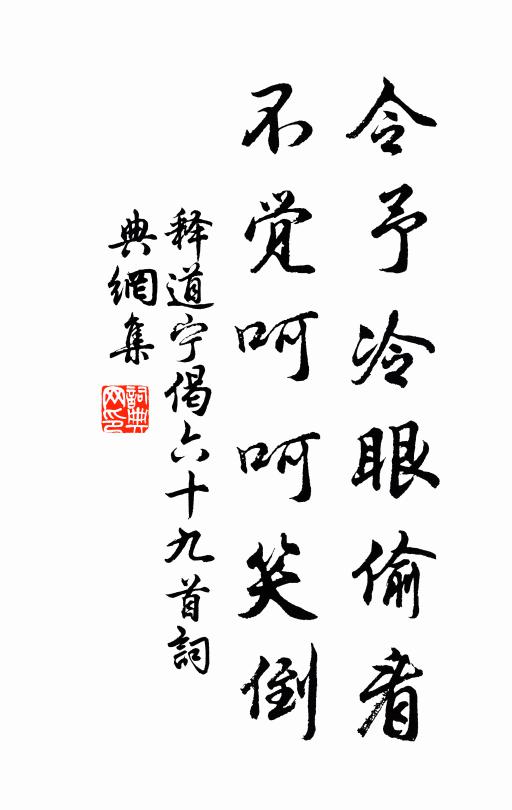 令予冷眼偷看
不觉呵呵笑倒
释道宁偈六十九首詞
典網集
詞典网印